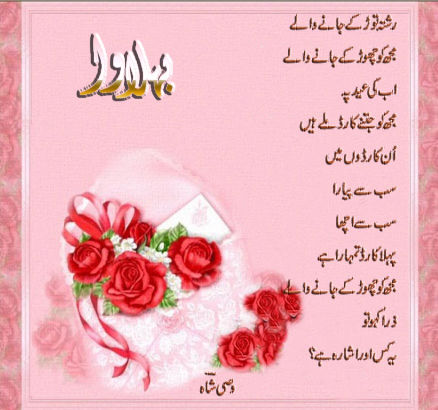 پہلا وار
رشتہ توڑ کے جانے والے
مجھ کو چھوڑ کے جانے والے
اب کی عید پہ
مجھ کو جتنے کارڈ ملے ہیں
اُن کارڈوں میں
سب سے پیارا
سب سے اچھا
پہلا کارڈ تمہارا ہے
مجھ کو چھوڑ کے جانے والے
ذرا کہو تو
یہ کس اور اشارہ ہے؟
وصی شاہ